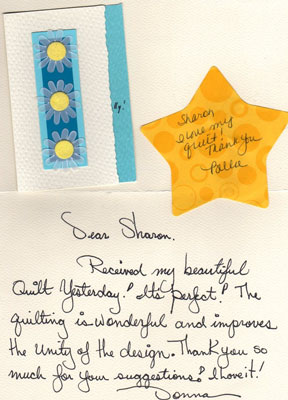 Sharon
I love my
quilt!
Thank you
Dear Sharon.
Received my beautiful
Quilt Yesterday! It's perfect! The
quilting is wonderful and improves
the unity of the design. Thank you so
much for your suggestions! I love it!
Donna